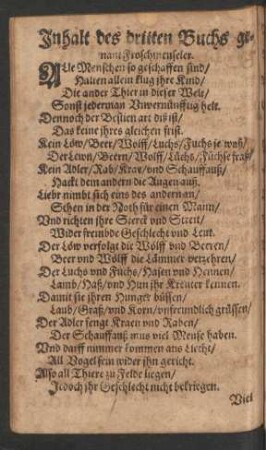 Inhalt des dritten Buchs ge-
nant Froschmeuseler.
Alle Menschen so geschaffen sind/
Halten allein klug jhre Kind/
Die ander Thier in dieser Welt/
Sonst jederman Vnvernünfftig helt.
Dennoch der Bestien art diß ist/
Das keine jhres gleichen frist.
Kein Löw/Beer/Wolff/Luchs/Fuchs je
Der Lewn/Beern/Wolff/Lüchs/Füchse fraß/
Kein Adler/Rab/Krae/vnd Schauffauß/
Hackt dem andern die Augen auß.
Liebr nimbt sich eins des andern an/
Stehen in der Noth für einen Mann/
Vnd richten jhre Sterck vnd Streit/
Wider frembde Geschlecht vnd Leut.
Der Löw verfolgt die Wölff vnd Beeren/
Beer vnd Wölff die Lämmer verzehren/
Der Luchs vnd Füchs/Hasen vnd Hennen/
Lamb/Haß/vnd Hun jhr Kreuter kennen.
Damit sie jhren Hunger büssen/
Laub/Graß/vnd Korn/vnfreundlich grüssen/
Der Adler fengt Kraen vnd Raben/
Der Schauffauß mus viel Meuse haben.
Vnd darff nimmer kommen ans Liecht/
All Vogel sein wider jhn gericht.
Also all Thiere zu Felde liegen/
Jedoch jhr Geschlecht nicht bekriegen.
Viel